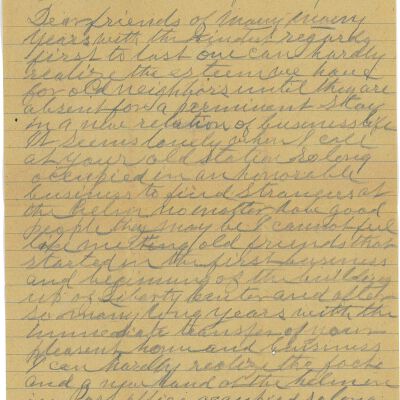 Dear friends of many many
years with the kindest regards
first to last one can hardly
realize the esteem we have
for old neighbors until they are
absent for a perminent stay
in a new relation of business life
It seems lonely when I call
at your old Station so long
occupied in an honorable
business to find strangers at
the helm no matter how good
people they may be I cannot feel
like meeting old friends that
started in the first business
and beginning of the building
up of Liberty Center and after
so many long years with the
immediate transfer of your
pleasent home and business
I can hardly realize the facts
and a new hand at the helm on